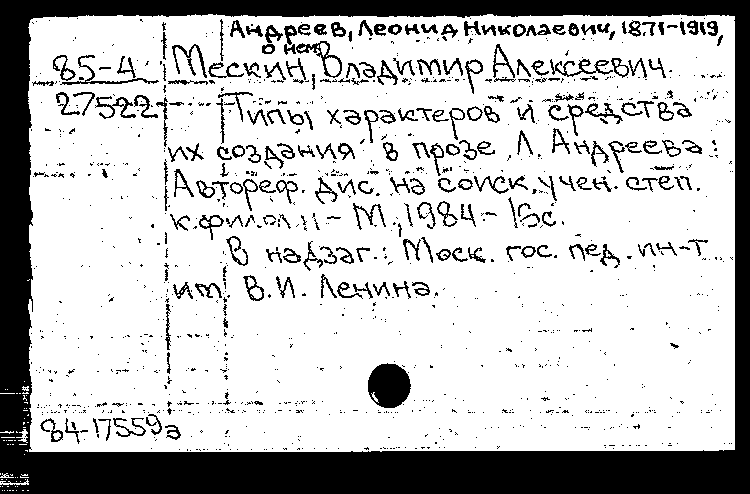 Андреев, Леонид Николаевич, 1871-1919,
о нем
85-4 Мескин, Владимир Алексеевич.
27522 Типы характеров и средства
их создания в прозе Л. Андреева:
Автореф. дис. на соиск. учен. степ.
к. филол. н - М., 1984 - 16с.
В надзаг.: Моск. гос. пед. ин-т
им. В.И. Ленина.
84-17559э